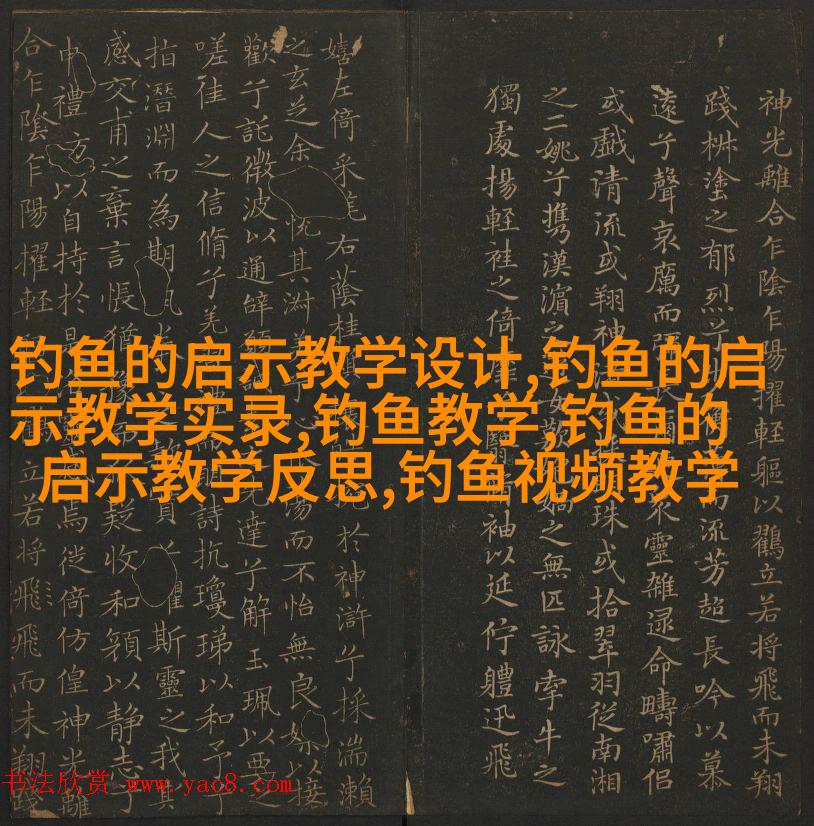 钓鱼的启示教学设计,钓鱼的启
示教学实录,钓鱼教学,钓鱼的
启示教学反思,钓鱼视频教学
神光離合乍陰乍陽擢輕軀以鸖立若將飛而未翔
踐椒塗之郁烈兮而流芳超長吟以慕
遠兮聲哀厲而靈雜遝命疇嘯侶
或戲清流或翔神珠或拾翠羽從南湘
之二姚兮攜漢濱之女之無匹詠牽牛之
獨處揚輕袿之倚袖以延佇體迅飛
嬉左倚采旄右蔭桂於神滸兮採湍瀨
之玄芝余悅其淑心而不怡無良媒以接
歡兮託微波以通辭先達兮解玉珮以要之
嗟佳人之信脩兮羌詩抗瓊珶以和予兮
指潛淵而為期懼斯靈之我欺
感交甫之棄言悵猶豫而疑收和顏以静志兮
申禮防以自持於是焉徙倚仿偟神光離
合乍陰乍陽擢輕立若將飛飛而未翔踐
书法欣赏 www.yac8.com